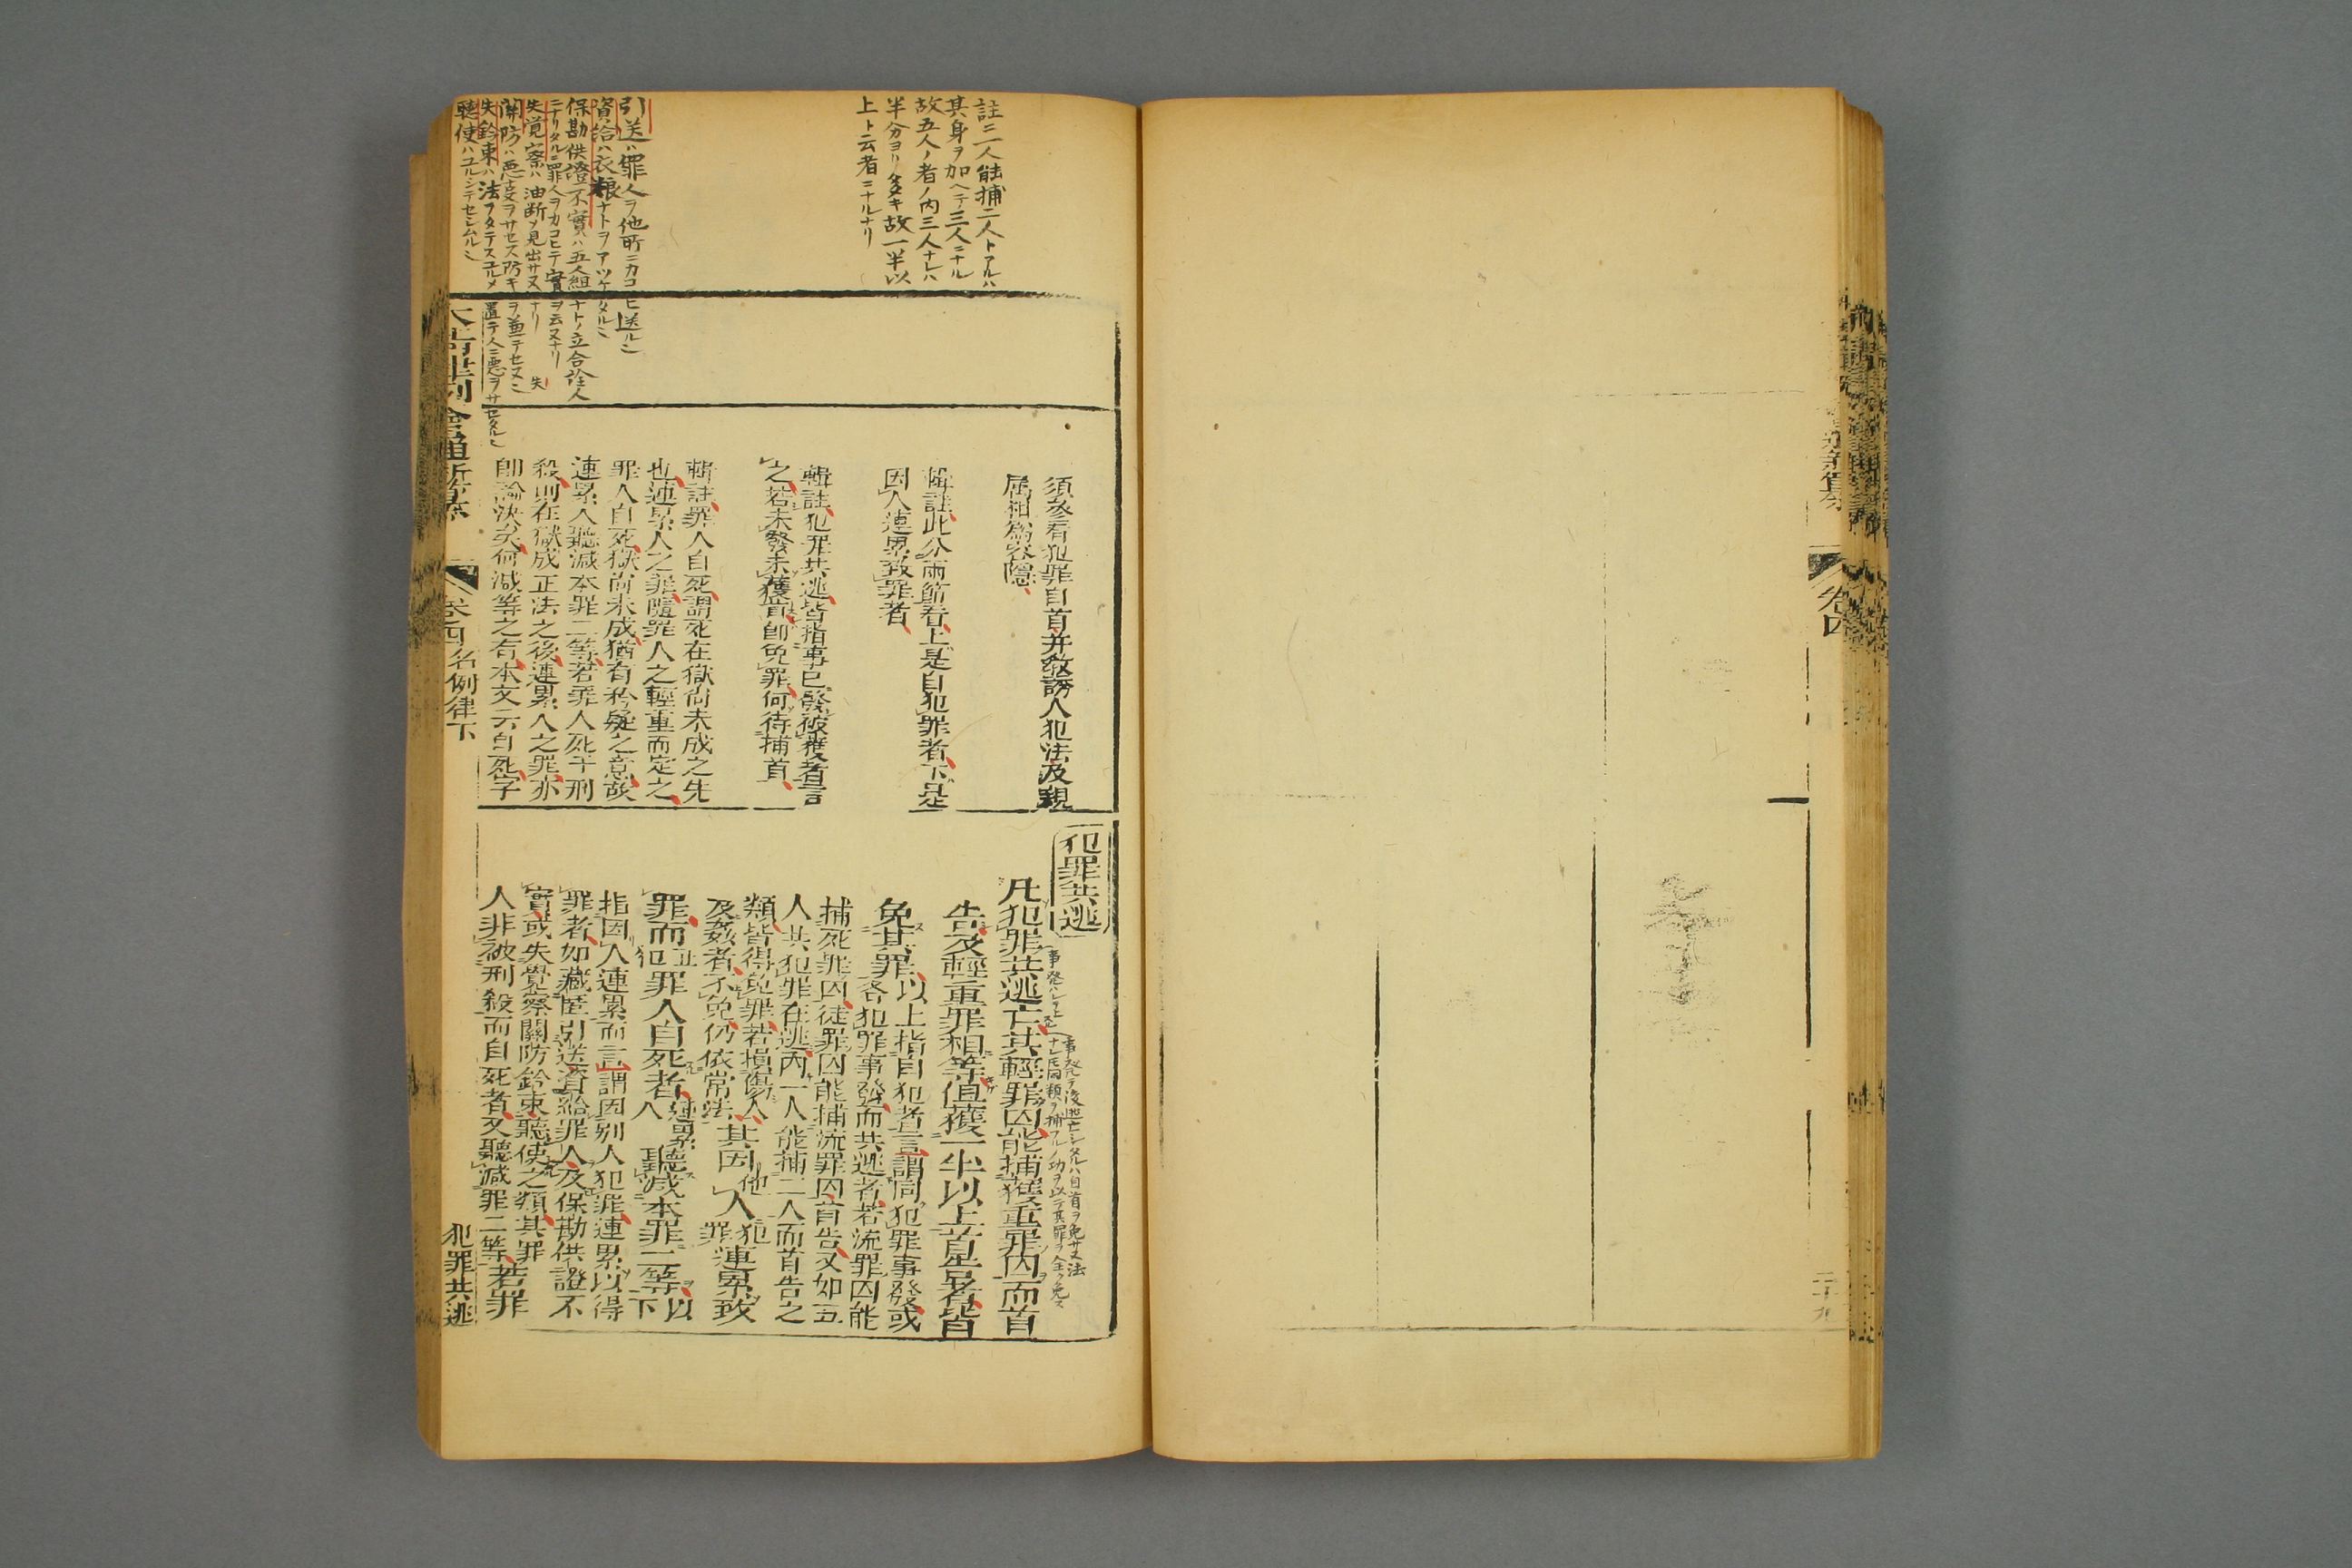 註ニ一人能捕二人トアルハ
其身ヲ加ヘテ三人ニナル
故五人ノ者ノ内三人ナレハ
半分ヨリ多キ故一半以
上ト云者ニナルナリ
引送ハ罪人ヲ他所ニカコヒ送ル
資給ハ衣粮ナトヲアツケタル
保勘供證不實ハ五人組ナトノ立合證人
ニナリタルニ罪人ヲカコヒテ實ヲ云ヌナリ
失覚察ハ油断メ見出サヌナリ
関防ハ悪事ヲサセス防キヲ
失鈐束ハ法ヲタテスユルメ置テ人ニ悪ヲサセタル
聴使ハユルシテセシムル
須参看犯罪自首并教誘人犯法及親
属相為容隠
輯註此分兩節看上是自犯罪者下是
因人連累致罪者
輯註犯罪共逃皆指事已發被獲者言
之若未發未獲首即免罪何待捕首
輯註罪人自死謂死在獄尚未成之先
也連累人之罪隨罪人之輕重而定之
罪人自死獄尚未成猶有矜疑之意故
連累人聽減本罪二等若罪人死于刑
殺則在獄成正法之後連累人之罪亦
即論決矣何減等之有本文云自死字
犯罪共逃
凡犯罪共逃亡其輕罪囚能捕獲重罪囚而首
告及輕重罪相等但獲一半以上首告者皆
免其罪以上指自犯者言謂同犯罪事發或
各犯罪事發而共逃者若流罪囚能
捕死罪囚徒罪囚能捕流罪囚首告又如五
人共犯罪在逃內一人能捕二人而首告之
類皆得免罪若損傷人
及姦者不免仍依常法其因他人犯罪連累致
罪而正犯罪人自死者連累人聽減本罪二等以下
指因人連累而言謂因别人犯罪連累以得
罪者如藏匿引送資給罪人及保勘供證不
實或失覺察關防鈐束聽使之類其罪
人非被刑殺而自死者又聽減罪二等若罪
大清律例會通新纂
卷四名例律下
犯罪共逃
卷四